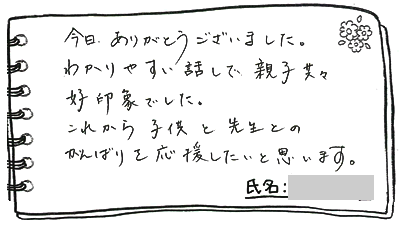 今日、ありがとうございました。
わかりやすい話しで、親子共々
好印象でした。
これから子供と先生との
がんばりを応援したいと思います。
氏名: